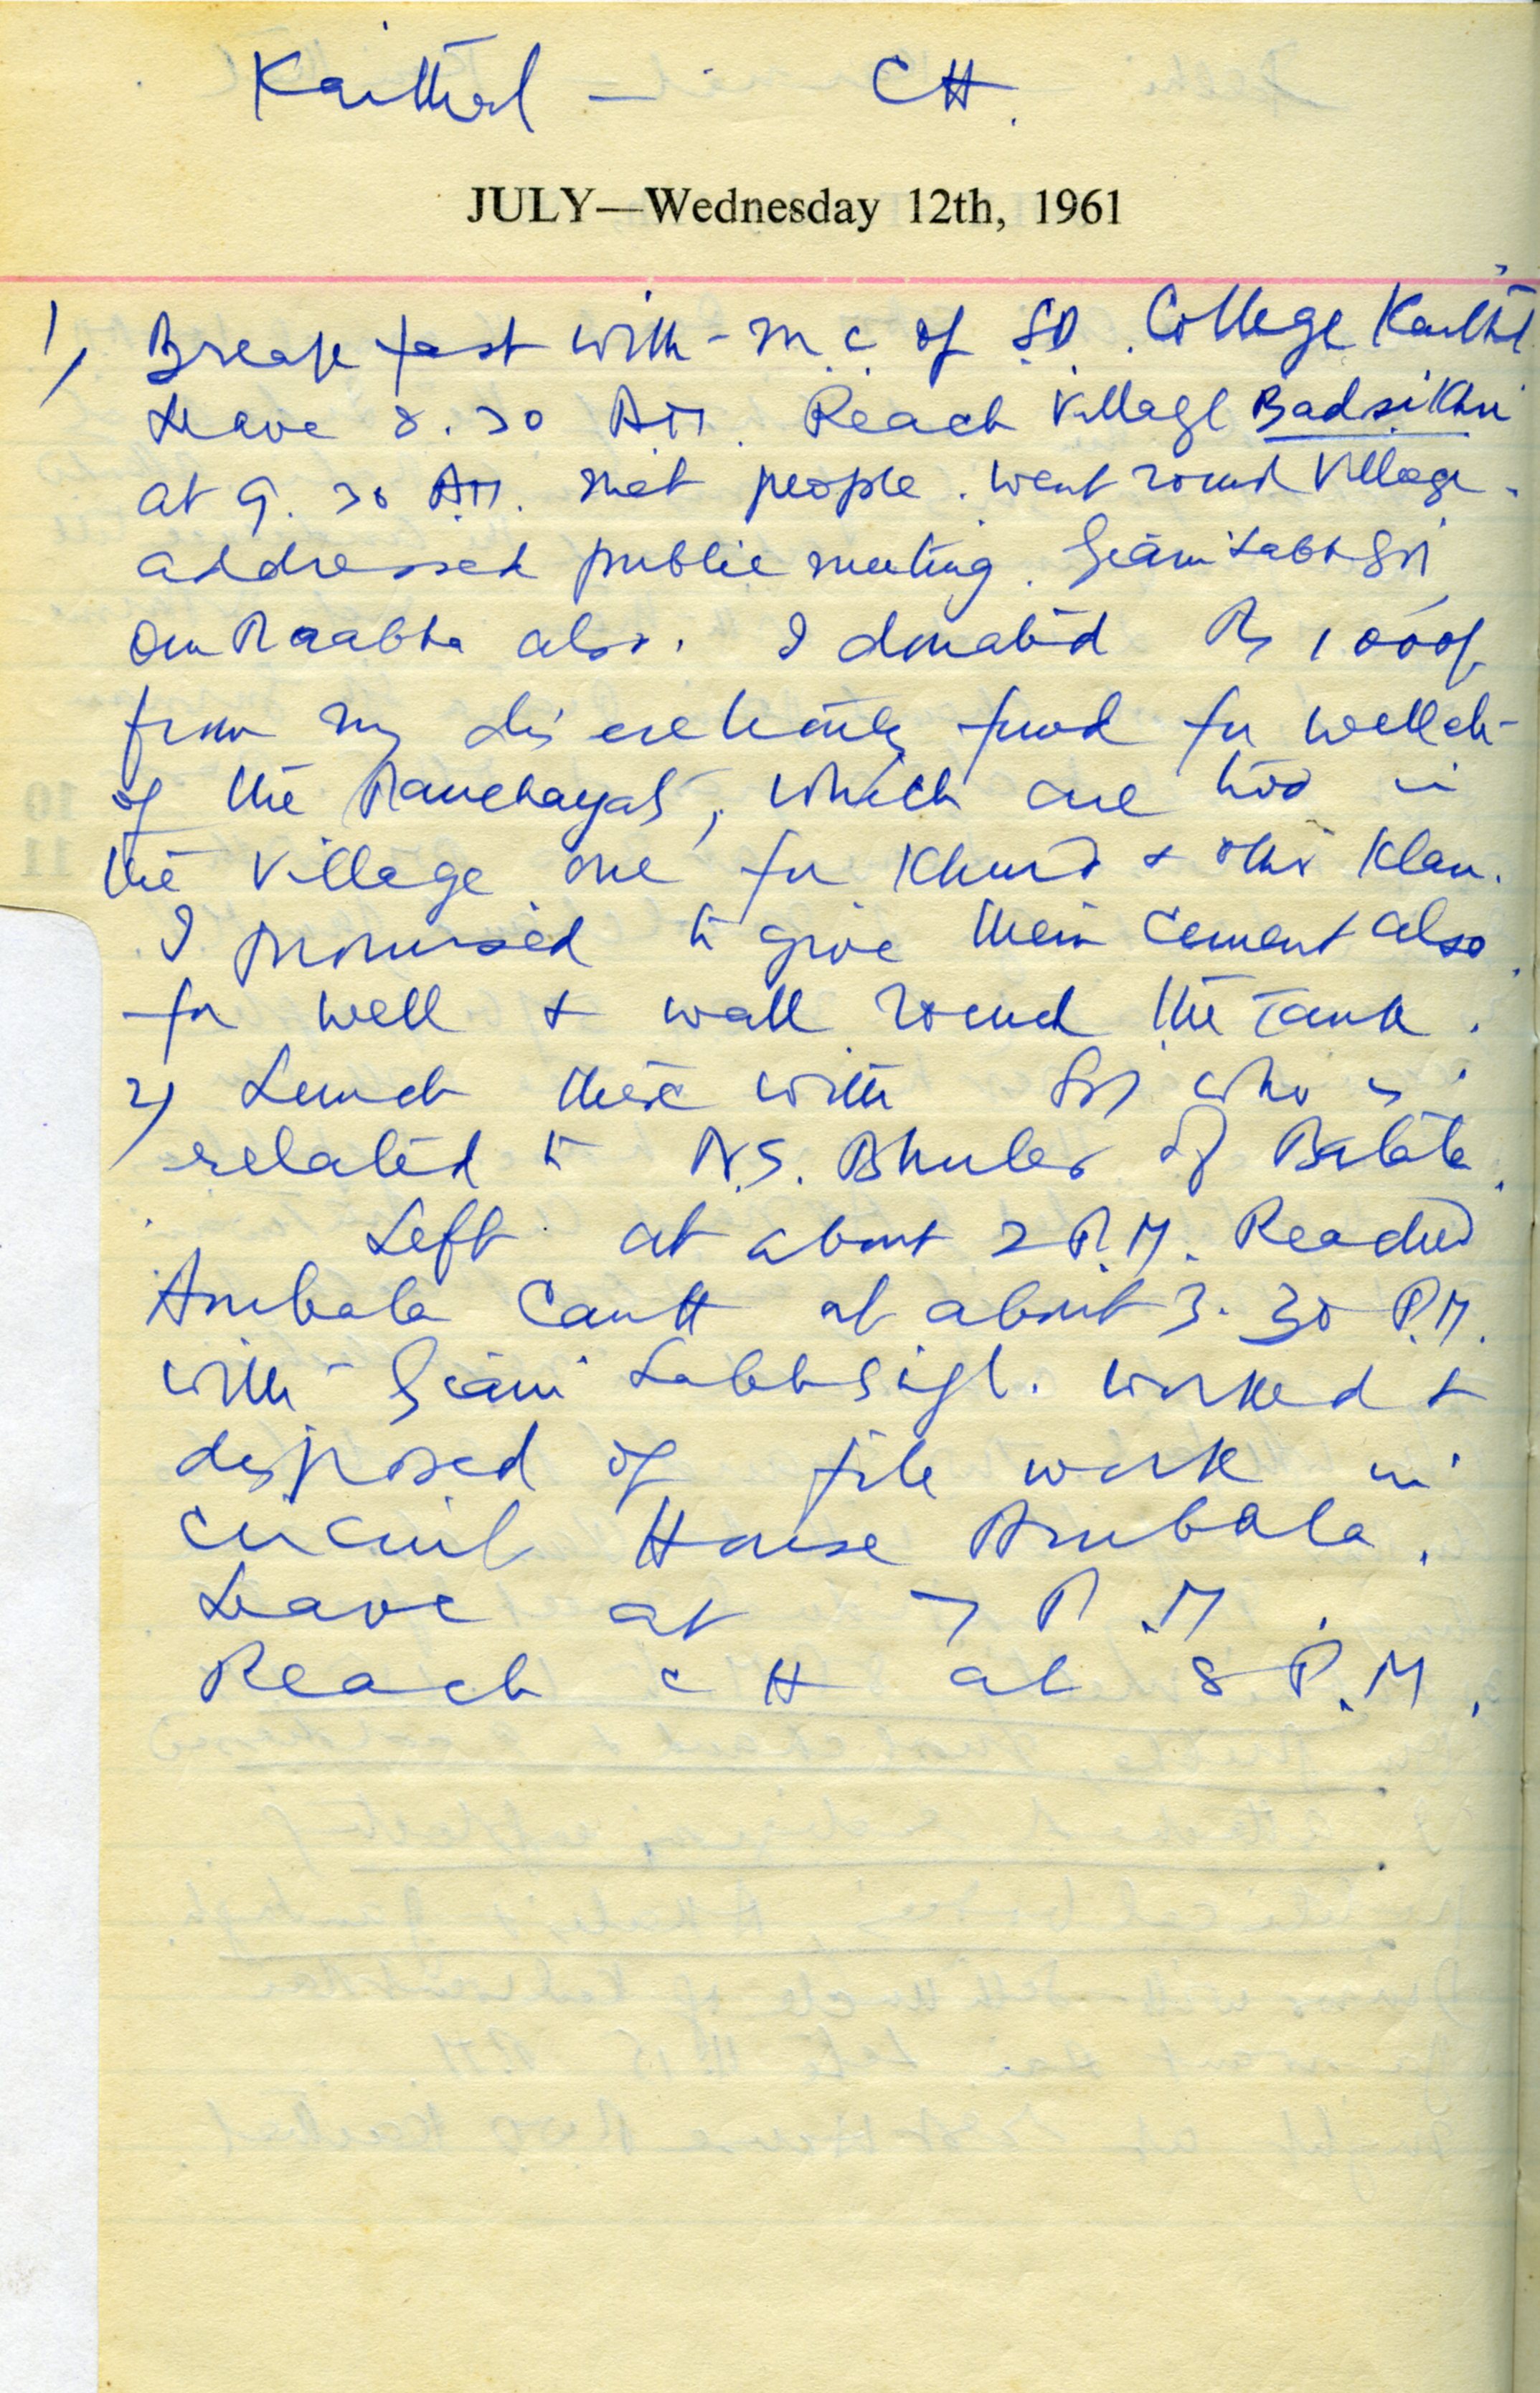 Kaithal — CH.
JULY—Wednesday 12th, 1961
1) Breakfast with - M.C of S.D. College Kaithal
Leave 8.30 AM. Reach Village Badsikhri
at 9.30 AM. Met people. Went round Village.
addressed public meeting. Giani Labh Sin
Om Prabha also. I donated Rs 1000/
from my discretionary fund for well
of the Panchayats, which are two in
the Village one for Khurd & other Klan.
I promised to give them cement also
for well & wall round the Tank.
2) Lunch there with who is
related to N.S. of
Left at about 2 P.M. Reached
Ambala Cantt at about 3.30 P.M.
with Giani Labh Sigh. Worked &
disposed of file work in
Circuit House Ambala.
Leave at 7 P.M.
Reach CH at 8 P.M.